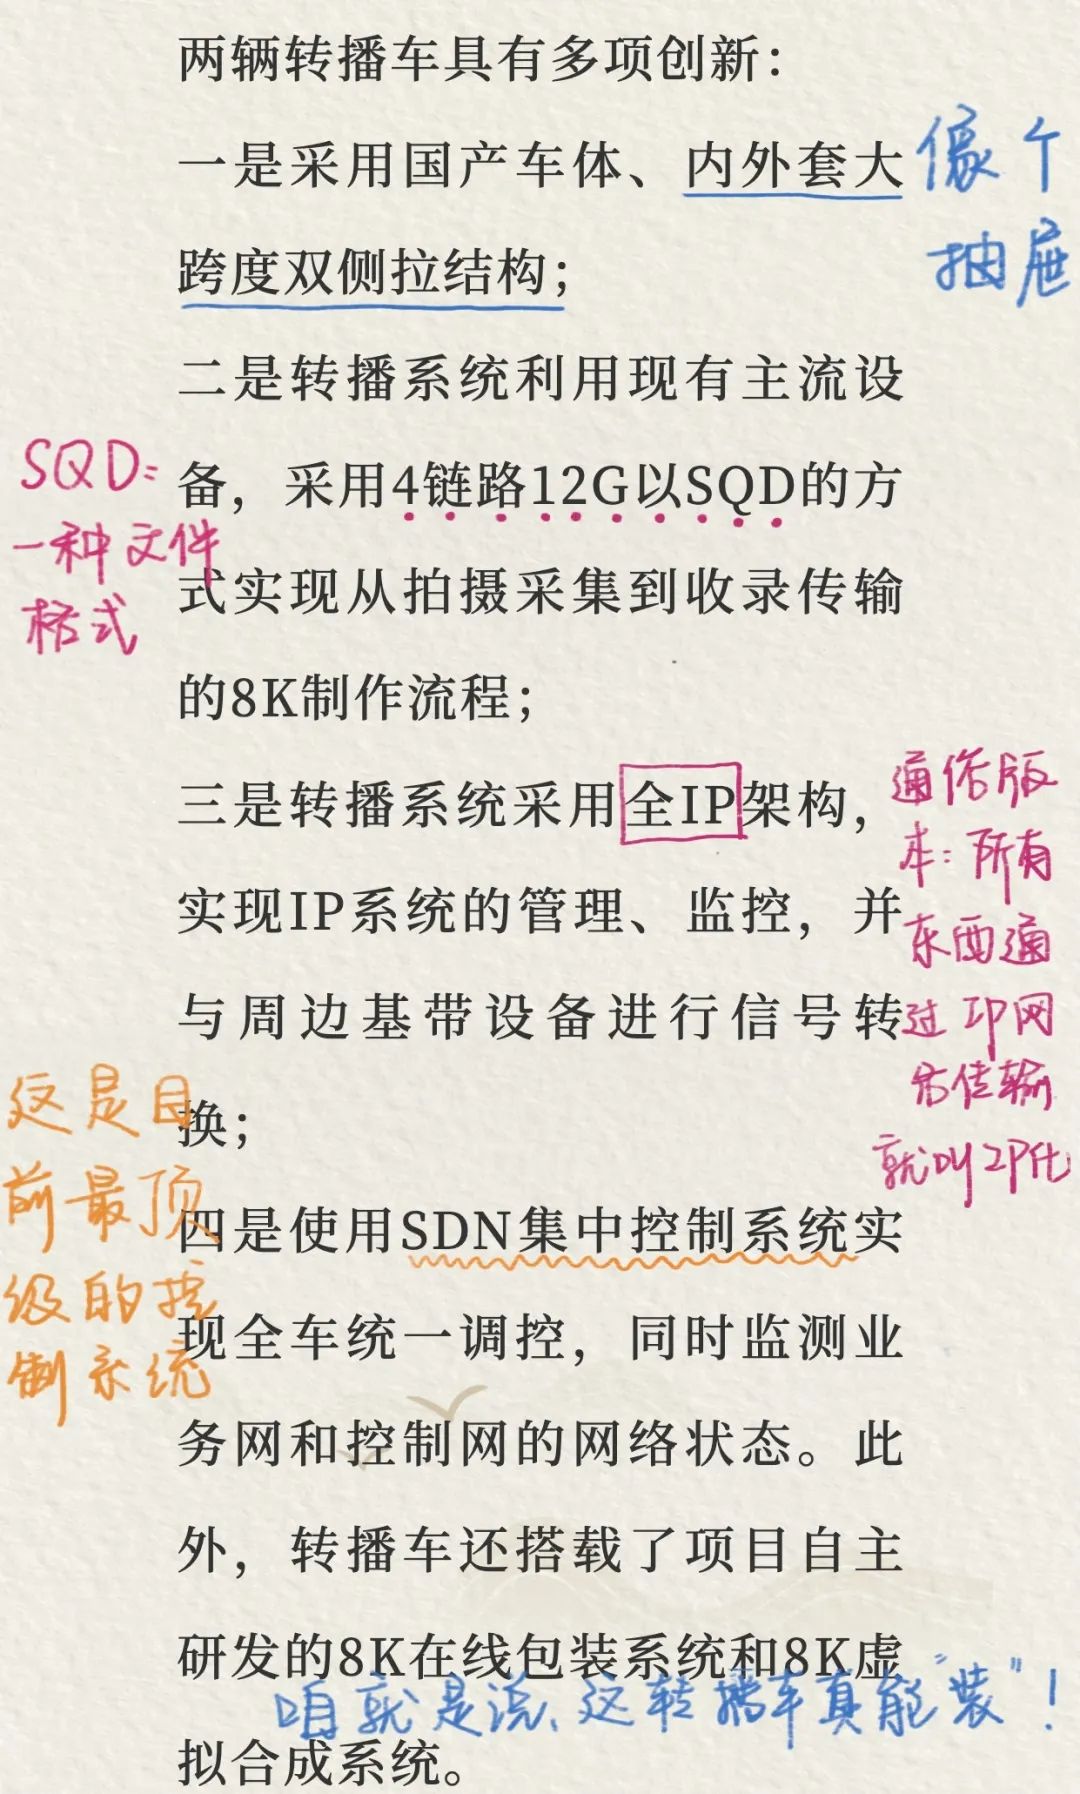 两辆转播车具有多项创新：
一是采用国产车体、内外套大
像个
跨度双侧拉结构；
抽屉
二是转播系统利用现有主流设
SQD：
备，采用4链路12G以SQD的方
一种文件
式实现从拍摄采集到收录传输
格式
的8K制作流程；
通俗版
三是转播系统采用全IP架构，
本：所有
实现IP系统的管理、监控，并
东西通
与周边基带设备进行信号转
过IP网
络传输
这是目
换；
就叫IP化
前最顶
四是使用SDN集中控制系统实
级的控
现全车统一调控，同时监测业
制系统
务网和控制网的网络状态。此
外，转播车还搭载了项目自主
研发的8K在线包装系统和8K虚
咱就是说、这转播车真能“装”！
拟合成系统。